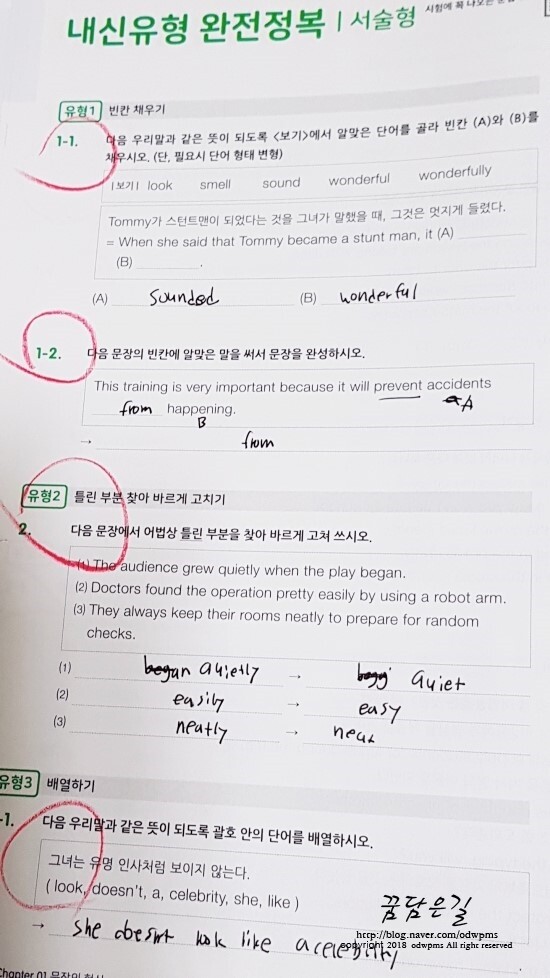 내신유형 완전정복 | 서술형
유형1 빈칸 채우기
1-1. 다음 우리말과 같은 뜻이 되도록 <보기>에서 알맞은 단어를 골라 빈칸 (A)와 (B)를
채우시오. (단, 필요시 단어 형태 변형)
|보기| look smell sound wonderful wonderfully
Tommy가 스턴트맨이 되었다는 것을 그녀가 말했을 때, 그것은 멋지게 들렸다.
= When she said that Tommy became a stunt man, it (A)
(B) .
(A) sounded (B) wonderful
1-2. 다음 문장의 빈칸에 알맞은 말을 써서 문장을 완성하시오.
This training is very important because it will prevent accidents
A
from happening.
B
→ from
유형2 틀린 부분 찾아 바르게 고치기
2. 다음 문장에서 어법상 틀린 부분을 찾아 바르게 고쳐 쓰시오.
(1) The audience grew quietly when the play began.
(2) Doctors found the operation pretty easily by using a robot arm.
(3) They always keep their rooms neatly to prepare for random
checks.
(1) quietly → quiet
(2) easily → easy
(3) neatly → neat
유형3 배열하기
-1. 다음 우리말과 같은 뜻이 되도록 괄호 안의 단어를 배열하시오.
그녀는 유명 인사처럼 보이지 않는다.
( look, doesn't, a, celebrity, she, like )
꿈담은길
→ she doesn't look like a celebrity
http://blog.naver.com/odwpms
copyright 2018 odwpms All right reserved
Chapter 01 문장의 형식